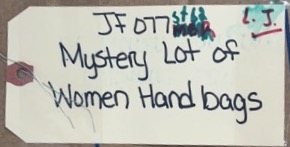 JF077 st62
L. J.
Mystery Lot of
Women Hand bags